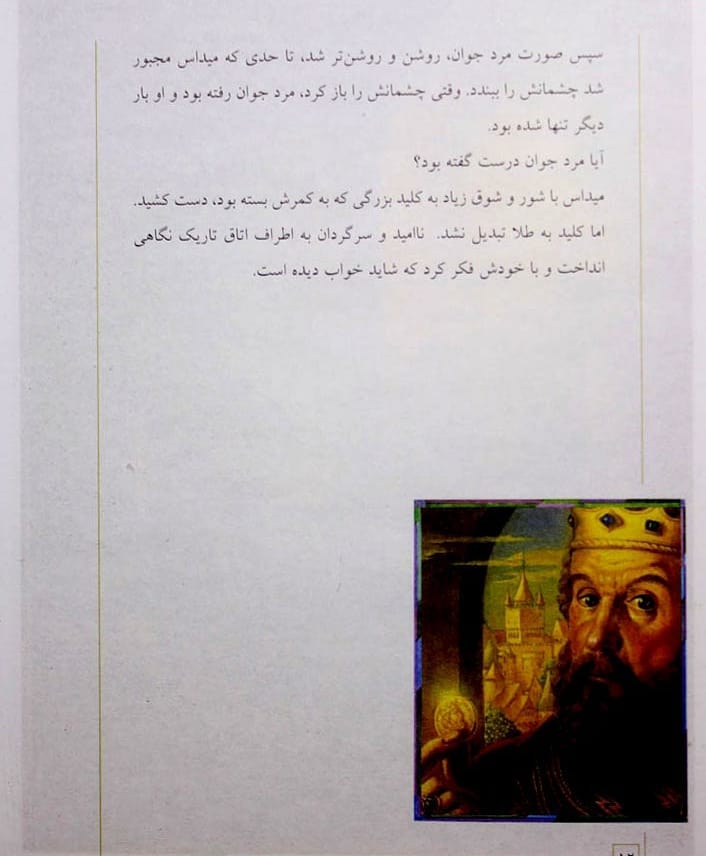 سپس صورت مرد جوان، روشن و روشن‌تر شد، تا حدی که میداس مجبور
شد چشمانش را ببندد. وقتی چشمانش را باز کرد، مرد جوان رفته بود و او بار
دیگر تنها شده بود.
آیا مرد جوان درست گفته بود؟
میداس با شور و شوق زیاد به کلید بزرگی که به کمرش بسته بود، دست کشید.
اما کلید به طلا تبدیل نشد. ناامید و سرگردان به اطراف اتاق تاریک نگاهی
انداخت و با خودش فکر کرد که شاید خواب دیده است.